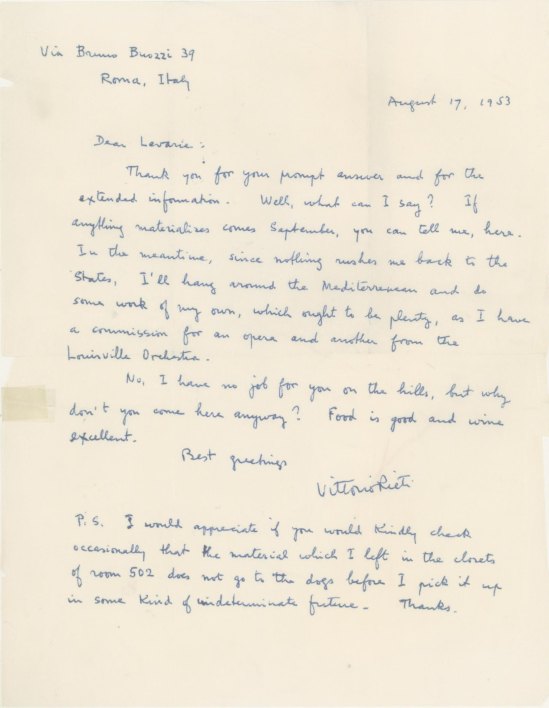 Via Bruno Buozzi 39
Roma, Italy
August 17, 1953
Dear Levarie:
Thank you for your prompt answer and for the
extended information. Well, what can I say? If
anything materializes comes September, you can tell me, here.
In the meantime, since nothing rushes me back to the
States, I'll hang around the Mediterranean and do
some work of my own, which ought to be plenty, as I have
a commission for an opera and another from the
Louisville Orchestra.
No, I have no job for you on the hills, but why
don't you come here anyway? Food is good and wine
excellent.
Best greetings
Vittorio Rieti
P.S. I would appreciate if you would kindly check
occasionally that the material which I left in the closets
of room 502 does not go to the dogs before I pick it up
in some kind of indeterminate future. Thanks.